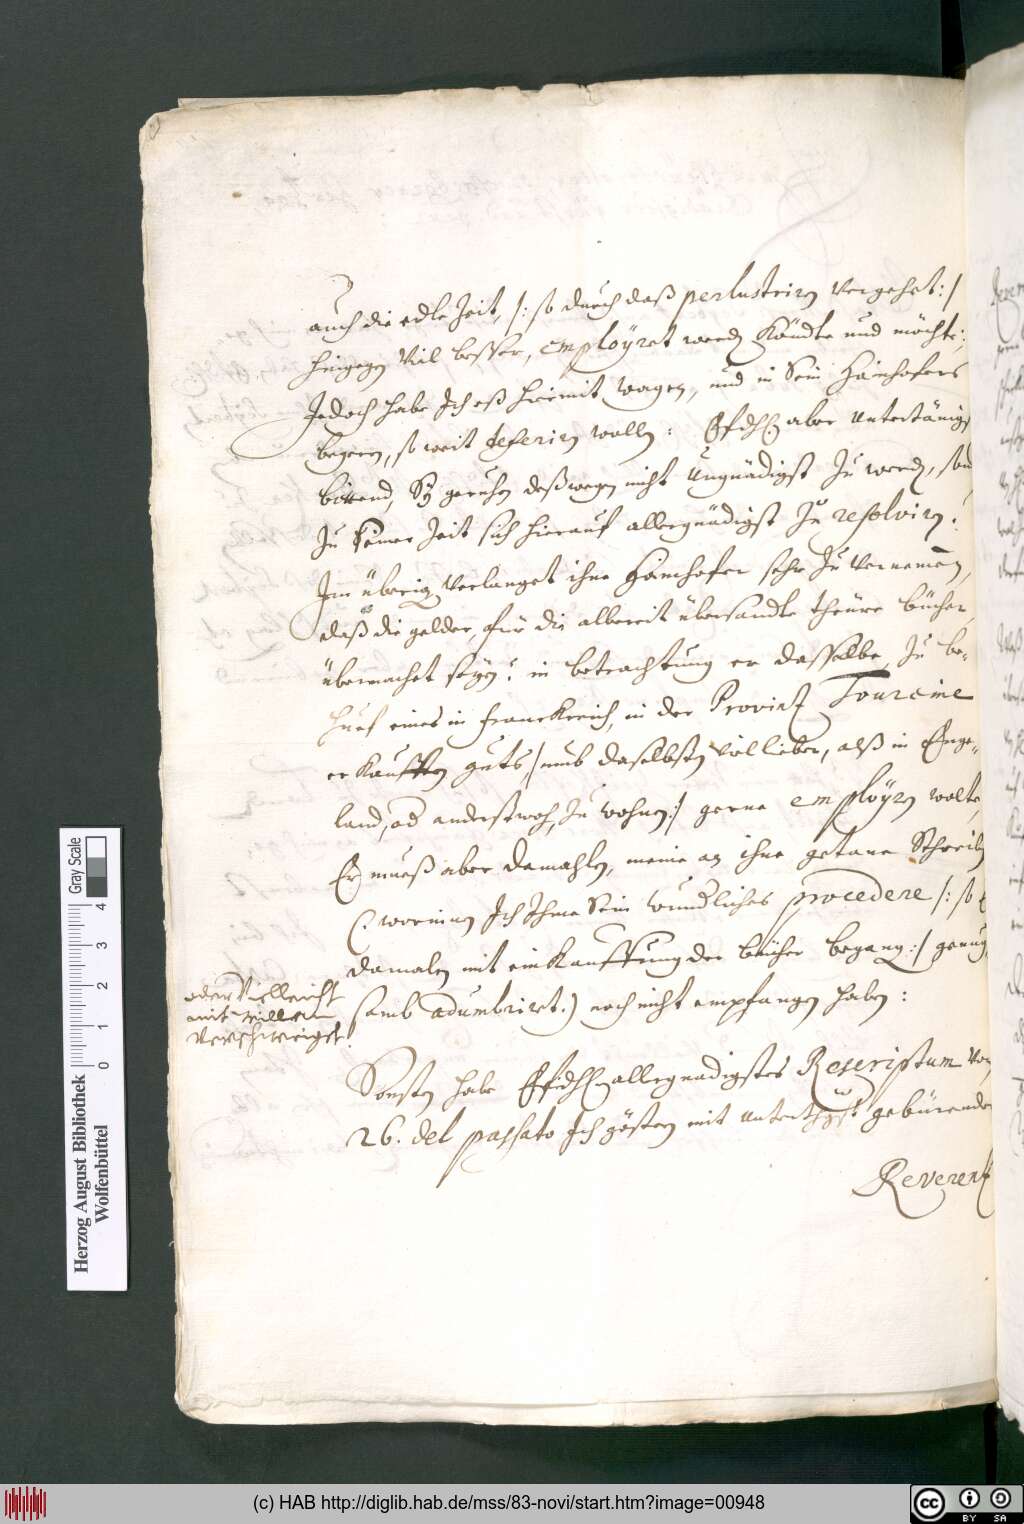 auch die edle Zeit, /: so durch daß perlustriren vergehet :/
hingegen vil besser, employret werden köndte und möchte;
Jedoch habe Ich eß hiermit wagen, und in Sein Hainhofers
begeren, so weit deferiren wollen: EfDhl aber untertänigst
bittend, Sy geruhen deßwegen nicht Ungnädigst zu werden, sond
zu seiner Zeit sich hierauf allergnädigst zu resolviren:
Im übrigen verlanget ihne Hainhofer sehr zu vernemmen,
daß die gelder, für die albereit übersandte theüre bücher,
übermachet seyen: in betrachtung er dasselbe, zu be-
huef eines in Franckreich, in der Provintz Touraine
erkaufften guts, /: umb daselbsten vil lieber, alß in Enge-
land, od anderstwoh, zu wohnen :/ gerne employren wolte,
Er mueß aber damahlen, meine an ihne getane Schreiben
(: worinnen Ich Ihme Sein wunderliches procedere /: so e
damalen mit einkauffung der bücher begangen :/ genug-
samb adumbriret :) noch nicht empfangen haben:
oder Vielleicht
mit willen
verschweigt!
Sonsten habe EfDhl allergnädigstes Rescriptum von
26. del passato Ich gestern mit unterthgst gebürender
Reverentz
Herzog August Bibliothek
Wolfenbüttel
Gray Scale
0 1 2 3 4
(c) HAB http://diglib.hab.de/mss/83-novi/start.htm?image=00948
cc BY SA